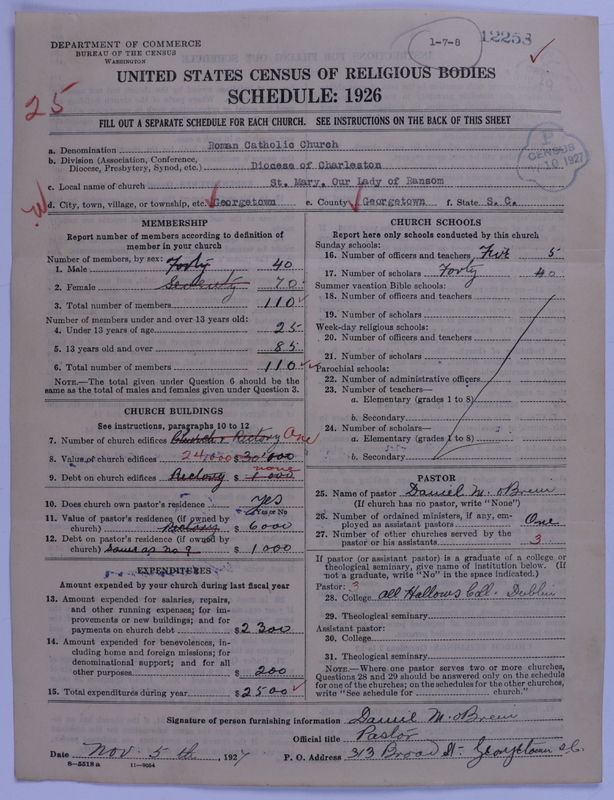 DEPARTMENT OF COMMERCE
BUREAU OF THE CENSUS
WASHINGTON
1-7-8
12258
UNITED STATES CENSUS OF RELIGIOUS BODIES
SCHEDULE: 1926
25
FILL OUT A SEPARATE SCHEDULE FOR EACH CHURCH. SEE INSTRUCTIONS ON THE BACK OF THIS SHEET
a. Denomination Roman Catholic Church
b. Division (Association, Conference, Diocese, Presbytery, Synod, etc.) Diocese of Charleston
c. Local name of church St. Mary, Our Lady of Ransom
d. City, town, village, or township, etc. Georgetown e. County Georgetown f. State S. C.
CENSUS
10 1927
MEMBERSHIP
Report number of members according to definition of
member in your church
Number of members, by sex:
1. Male Forty 40
2. Female Seventy 70
3. Total number of members 110
Number of members under and over 13 years old:
4. Under 13 years of age 25
5. 13 years old and over 85
6. Total number of members 110
NOTE.—The total given under Question 6 should be the
same as the total of males and females given under Question 3.
CHURCH BUILDINGS
See instructions, paragraphs 10 to 12
7. Number of church edifices Church & Rectory One
8. Value of church edifices 24,000 $30,000
9. Debt on church edifices Rectory none $1000
10. Does church own pastor's residence yes
Yes or No
11. Value of pastor's residence (if owned by
church) $6000
12. Debt on pastor's residence (if owned by
church) Same as no 9 $1000
EXPENDITURES
Amount expended by your church during last fiscal year
13. Amount expended for salaries, repairs,
and other running expenses; for im-
provements or new buildings; and for
payments on church debt $2300
14. Amount expended for benevolences, in-
cluding home and foreign missions; for
denominational support; and for all
other purposes $200
15. Total expenditures during year $2500
CHURCH SCHOOLS
Report here only schools conducted by this church
Sunday schools:
16. Number of officers and teachers 5
17. Number of scholars Forty 40
Summer vacation Bible schools:
18. Number of officers and teachers
19. Number of scholars
Week-day religious schools:
20. Number of officers and teachers
21. Number of scholars
Parochial schools:
22. Number of administrative officers
23. Number of teachers—
a. Elementary (grades 1 to 8)
b. Secondary
24. Number of scholars—
a. Elementary (grades 1 to 8)
b. Secondary
PASTOR
25. Name of pastor Daniel M. O'Brien
(If church has no pastor, write "None")
26. Number of ordained ministers, if any, em-
ployed as assistant pastors One
27. Number of other churches served by the
pastor or his assistants 3
If pastor (or assistant pastor) is a graduate of a college or
theological seminary, give name of institution below. (If
not a graduate, write "No" in the space indicated.)
Pastor: 3
28. College All Hallows Coll. Dublin
29. Theological seminary
Assistant pastor:
30. College
31. Theological seminary
NOTE.—Where one pastor serves two or more churches,
Questions 28 and 29 should be answered only on the schedule
for one of the churches; on the schedules for the other churches,
write "See schedule for church."
Signature of person furnishing information Daniel M. O'Brien
Official title Pastor
Date Nov. 5th, 1927 P. O. Address 313 Broad St. Georgetown S.C.
8-5518a 11-9054